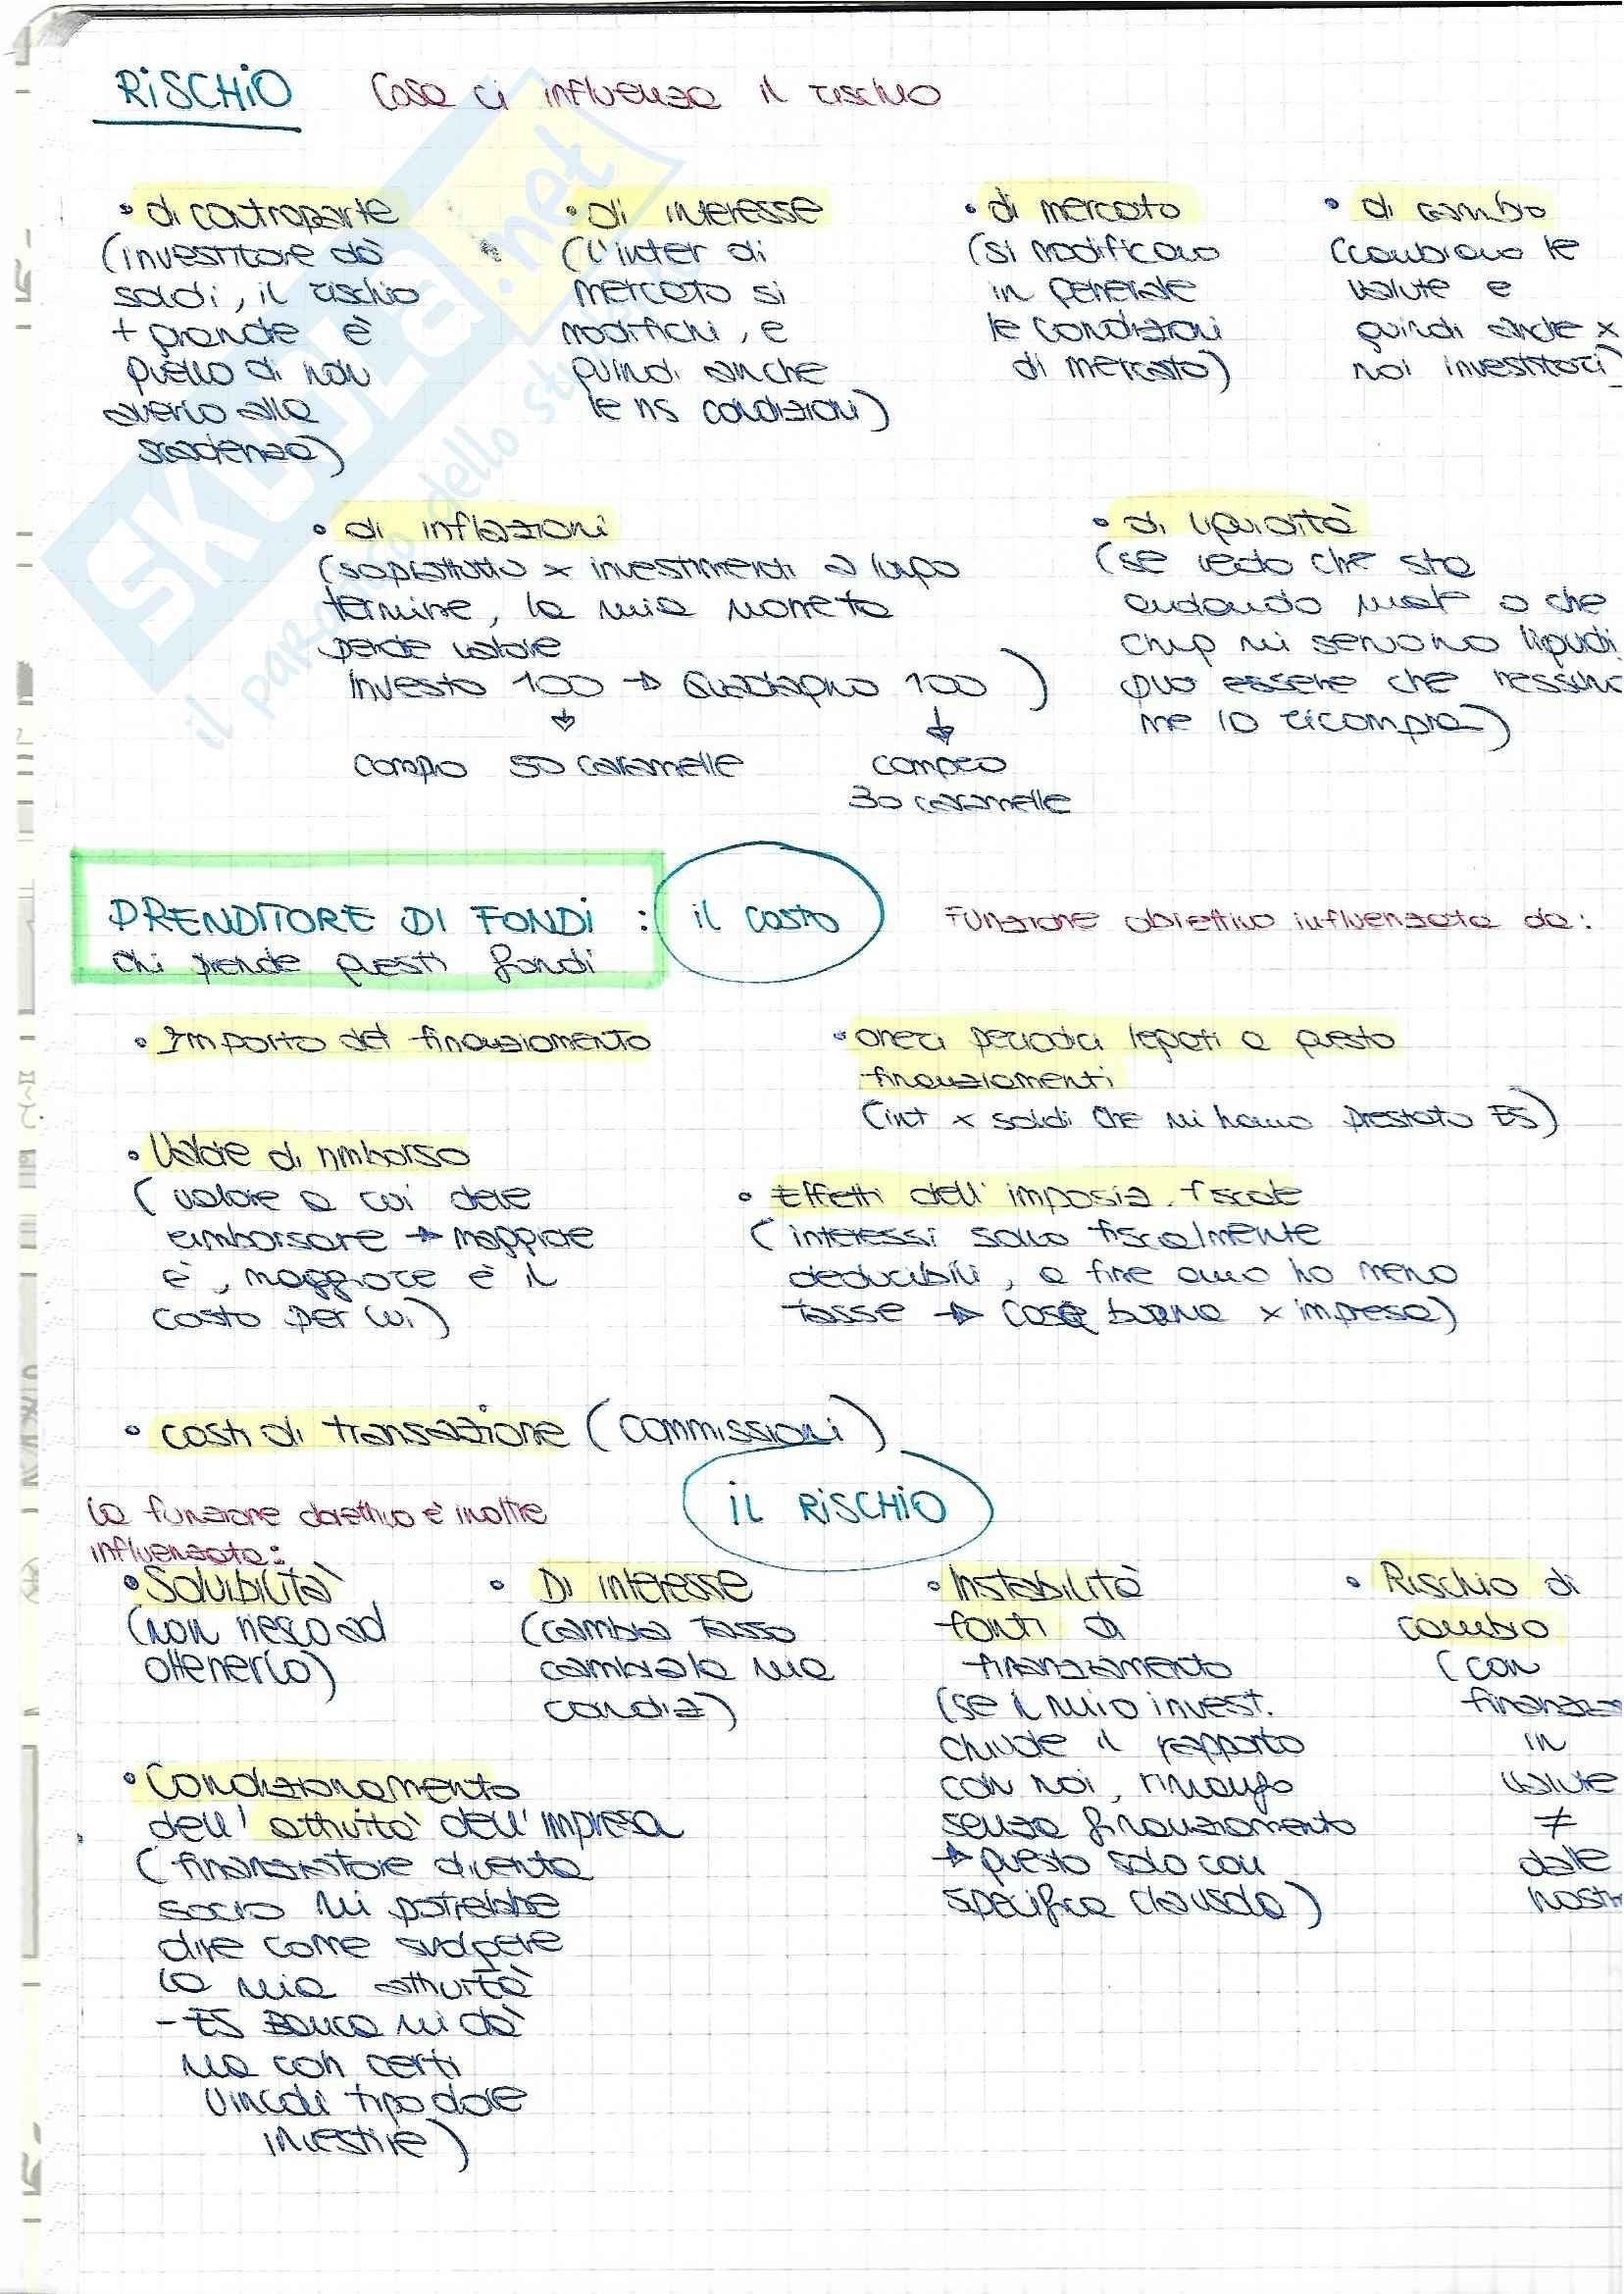 RISCHIO Cosa ci influenza il rischio
• di controparte
(investitore dà
soldi, il rischio
+ grande è
quello di non
averlo alla
scadenza)
• di interesse
(l'inter di
mercato si
modifichi, e
quindi anche
le ns condizioni)
• di mercato
(si modificano
in generale
le condizioni
di mercato)
• di cambio
(cambiano le
valute e
quindi anche x
noi investitori)
• di inflazioni
(soprattutto x investimenti a lungo
termine, la mia moneta
perde valore
Investo 100 → Guadagno 100 )
↓ ↓
compro 50 caramelle compro
30 caramelle
• di liquidità
(se vedo che sta
andando male o che
cmq mi servono liquidi
può essere che nessuno
me lo ricompra)
PRENDITORE DI FONDI : il costo Funzione obiettivo influenzata da:
chi prende questi fondi
• Importo del finanziamento
• oneri periodici legati a questo
finanziamenti
(int x soldi che mi hanno prestato ES)
• Valore di rimborso
(valore a cui deve
rimborsare → maggiore
è, maggiore è il
costo per lui)
• Effetti dell'imposiz. fiscale
(interessi sono fiscalmente
deducibili, a fine anno ho meno
tasse → cosa buona x impresa)
• costi di transazione (commissioni)
IL RISCHIO
la funzione obiettivo è inoltre
influenzata:
• Solvibilità
(non riesco ad
ottenerlo)
• Di interesse
(cambia tasso
cambia la mia
condiz)
• Instabilità
fonti di
finanziamento
(se il mio invest.
chiude il rapporto
con noi, rimango
senza finanziamento
→ questo solo con
specifica clausola)
• Rischio di
cambio
(con
finanzia
in
valute
≠
dalle
nostr
• Condizionamento
dell'attività dell'impresa
(finanziatore diventa
socio mi potrebbe
dire come svolgere
la mia attività
- ES Banca mi dà
ma con certi
vincoli tipo dove
investire)
SKUOLA.net
il paradiso dello stu